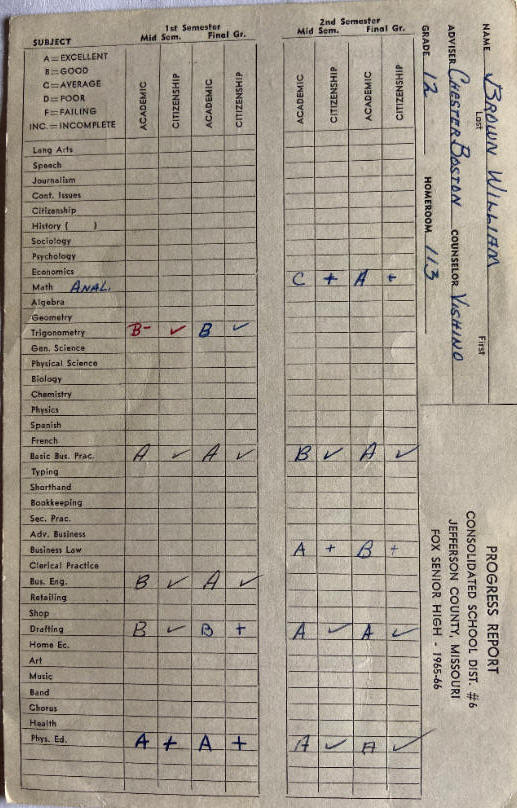 SUBJECT
1st Semester
Mid Sem. Final Gr.
2nd Semester
Mid Sem. Final Gr.
A=EXCELLENT
B=GOOD
C=AVERAGE
D=POOR
F=FAILING
INC.=INCOMPLETE
ACADEMIC CITIZENSHIP ACADEMIC CITIZENSHIP ACADEMIC CITIZENSHIP ACADEMIC CITIZENSHIP
Lang Arts
Speech
Journalism
Cont. Issues
Citizenship
History ( )
Sociology
Psychology
Economics
Math ANAL. C + A +
Algebra
Geometry
Trigonometry B- ✓ B ✓
Gen. Science
Physical Science
Biology
Chemistry
Physics
Spanish
French
Basic Bus. Prac. A ✓ A ✓ B ✓ A ✓
Typing
Shorthand
Bookkeeping
Sec. Prac.
Adv. Business
Business Law A + B +
Clerical Practice
Bus. Eng. B ✓ A ✓
Retailing
Shop
Drafting B ✓ B + A ✓ A ✓
Home Ec.
Art
Music
Band
Chorus
Health
Phys. Ed. A + A + A ✓ A ✓
NAME BROWN WILLIAM
Last First
ADVISER CHESTER BOSTON COUNSELOR YUSHINO
GRADE 12 HOMEROOM 113
PROGRESS REPORT
CONSOLIDATED SCHOOL DIST. #6
JEFFERSON COUNTY, MISSOURI
FOX SENIOR HIGH - 1965-66